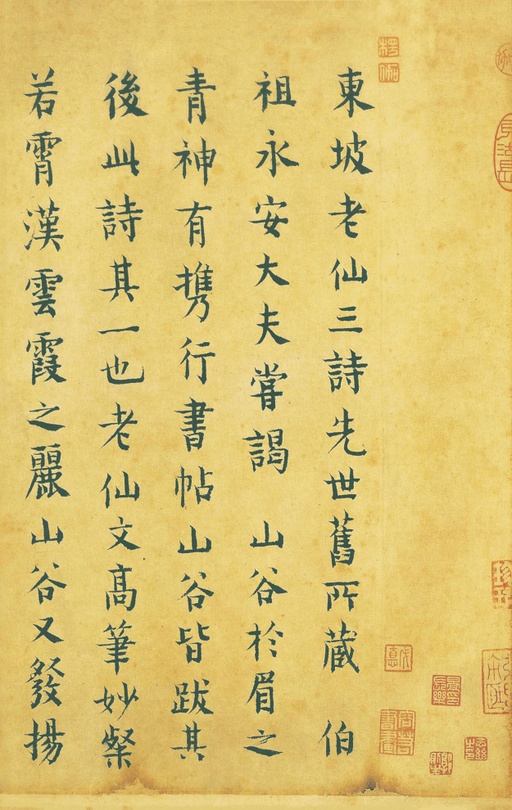 東坡老仙三詩先世舊所藏 伯
祖永安大夫嘗謁 山谷於眉之
青神有攜行書帖山谷皆跋其
後此詩其一也老仙文高筆妙粲
若霄漢雲霞之麗山谷又發揚